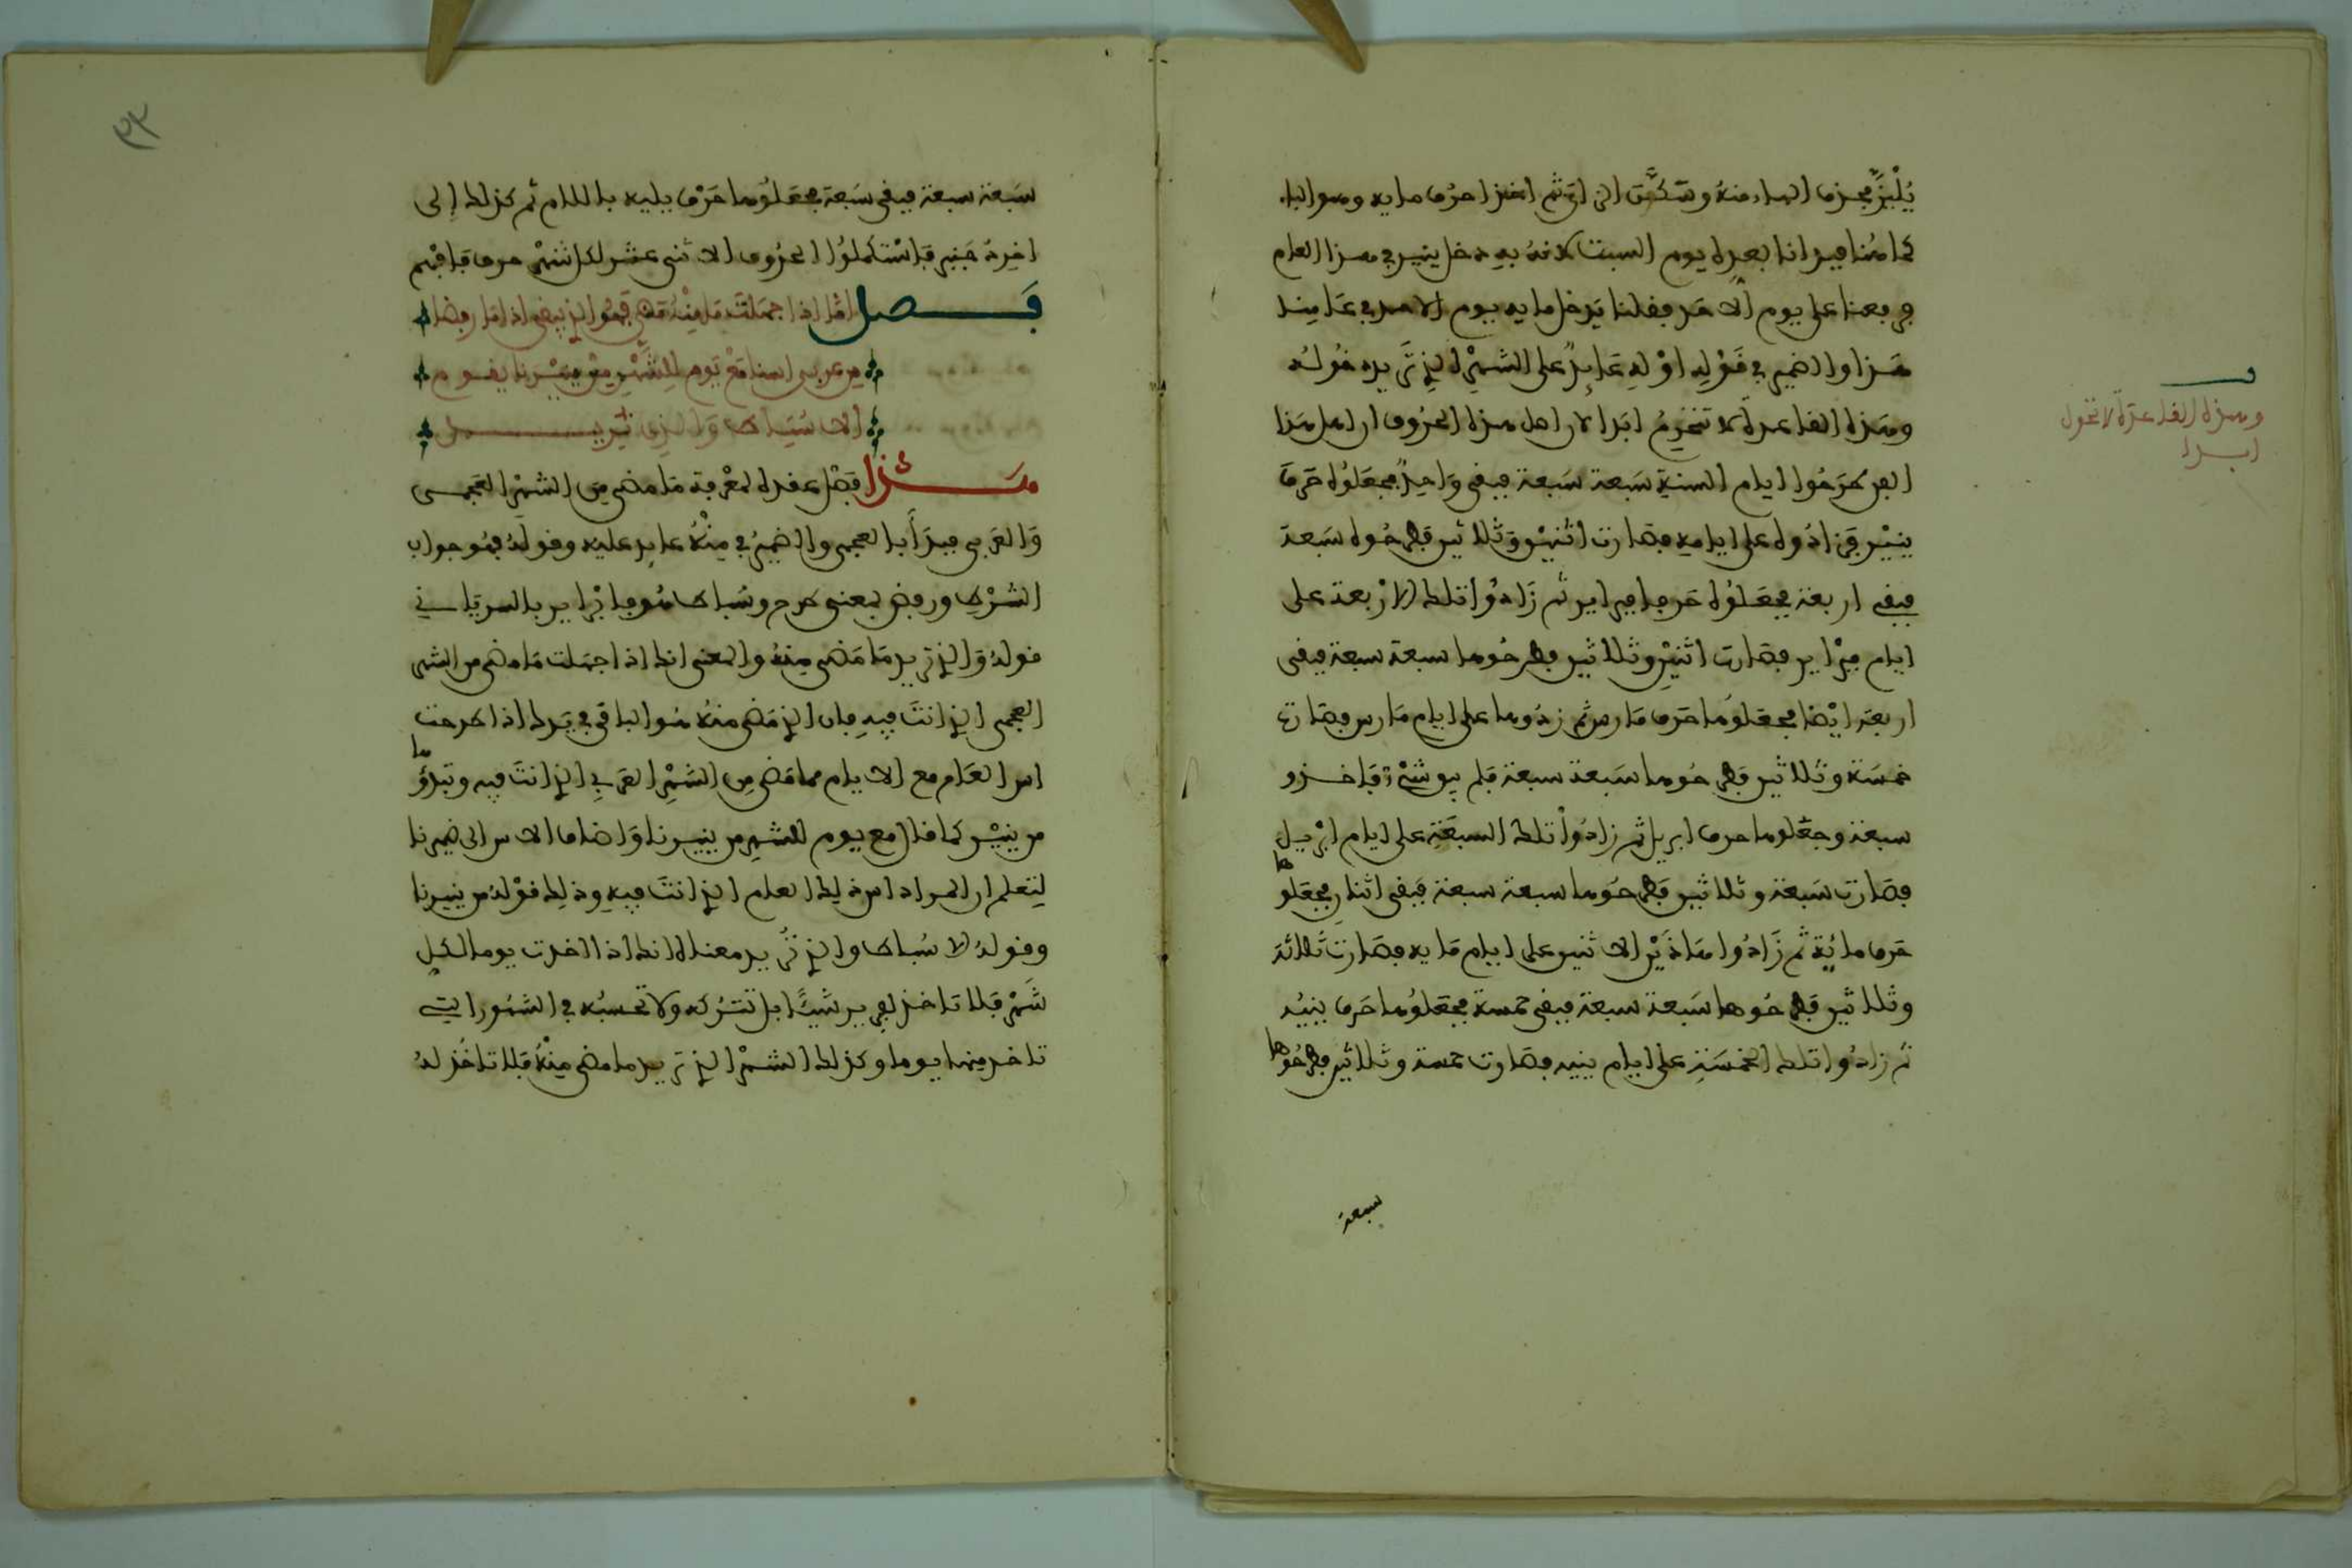 كما هنا فبدانا بعده يوم السبت لانه به دخل ينير في هذا العام
فوقعنا على يوم الاحد فقلنا يدخل مايه بيوم الاحد في عامنا
هذا والضمير في قوله اوله عايد على الشهر الذي تريده قوله
وهذه القاعدة لا تنخرم ابدا لان اهل هذه الحروف اي اهل هذا
الفن طرحوا ايام السنة سبعة سبعة فبقي واحد فجعلوه حرف
ينير فزادوه على ايامه فصارت اثنين وثلاثين فطرحوه سبعة
فبقي اربعة فجعلوه حرف فبراير ثم زادوا تلك الاربعة على
ايام فبراير فصارت اثنين وثلاثين فطرحوها سبعة سبعة فبقي
اربعة ايضا فجعلوها حرف مارس ثم زدوها على ايام مارس فصارت
خمسة وثلاثين فطرحوها سبعة سبعة فلم يبق شيء فاخذو
سبعة وجعلوها حرف ابريل ثم زادوا تلك السبعة على ايام ابريل
فصارت سبعة وثلاثين فطرحوها سبعة سبعة فبقي اثنان فجعلوها
حرف مايه ثم زادوا هاذين الاثنين على ايام مايه فصارت ثلاثة
وثلاثين فطرحوها سبعة سبعة فبقي خمسة فجعلوها حرف ينيه
ثم زادوا تلك الخمسة على ايام ينيه فصارت خمسة وثلاثين فطرحوها
سبعة
وهذه القاعدة لا تحول
ابدا
سبعة سبعة فبقي سبعة فجعلوها حرف يليه باللام ثم كذلك إلى
اخره جنبر فاستكملوا الحروف الاثني عشر لكل شهر حرف فافهم
فصل اما اذا جهلت ما منه مضى فهو الذي يبقى اذا ما رفضا
من عربي اسنا مع يوم للشهر من ينيرنا يقوم
الا شباط والذي تريد
هذا فصل عقده لمعرفة ما مضى من الشهر العجمي
والعربي فبدأ بالعجمي والضمير في منه عايد عليه وقوله فهو جواب
الشرط ورفض بمعنى طرح وشباط هو فبراير بالسريانية في
قوله والذي تريد ما مضى منه والمعنى انك اذا جهلت ما مضى من الشهر
العجمي الذي انت فيه فان الذي مضى منه هو الباقي في يدك اذا طرحت
اس العام مع الايام مما مضى من الشهر العربي الذي انت فيه وتبدؤها
من ينير كما قال مع يوم للشهر من ينيرنا واضاف الاس الى ضميرنا
لتعلم ان المراد اس ذلك العام الذي انت فيه وذلك قوله من ينيرنا
وقوله الا شباط والذي تريد معناه انك اذا اخذت يوما لكل
شهر فلا تاخذ لفبراير شيئا بل تتركه ولا تحسبه في الشهور التي
تاخذ منها يوما وكذلك الشهر الذي تريد ما مضى منه فلا تاخذ له